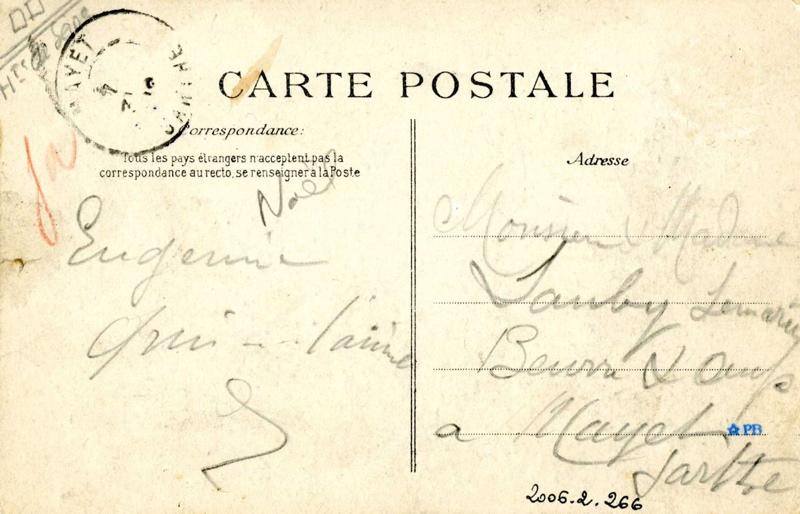 MAYET
SARTHE
CARTE POSTALE
Correspondance:
Tous les pays étrangers n'acceptent pas la
correspondance au recto, se renseigner à la Poste
Adresse
Noël
Eugenie
qui l'aime
Monsieur & Madame
Lauby
Beurre & Oeufs
a Mayet
Sarthe
PB
2006.2.266